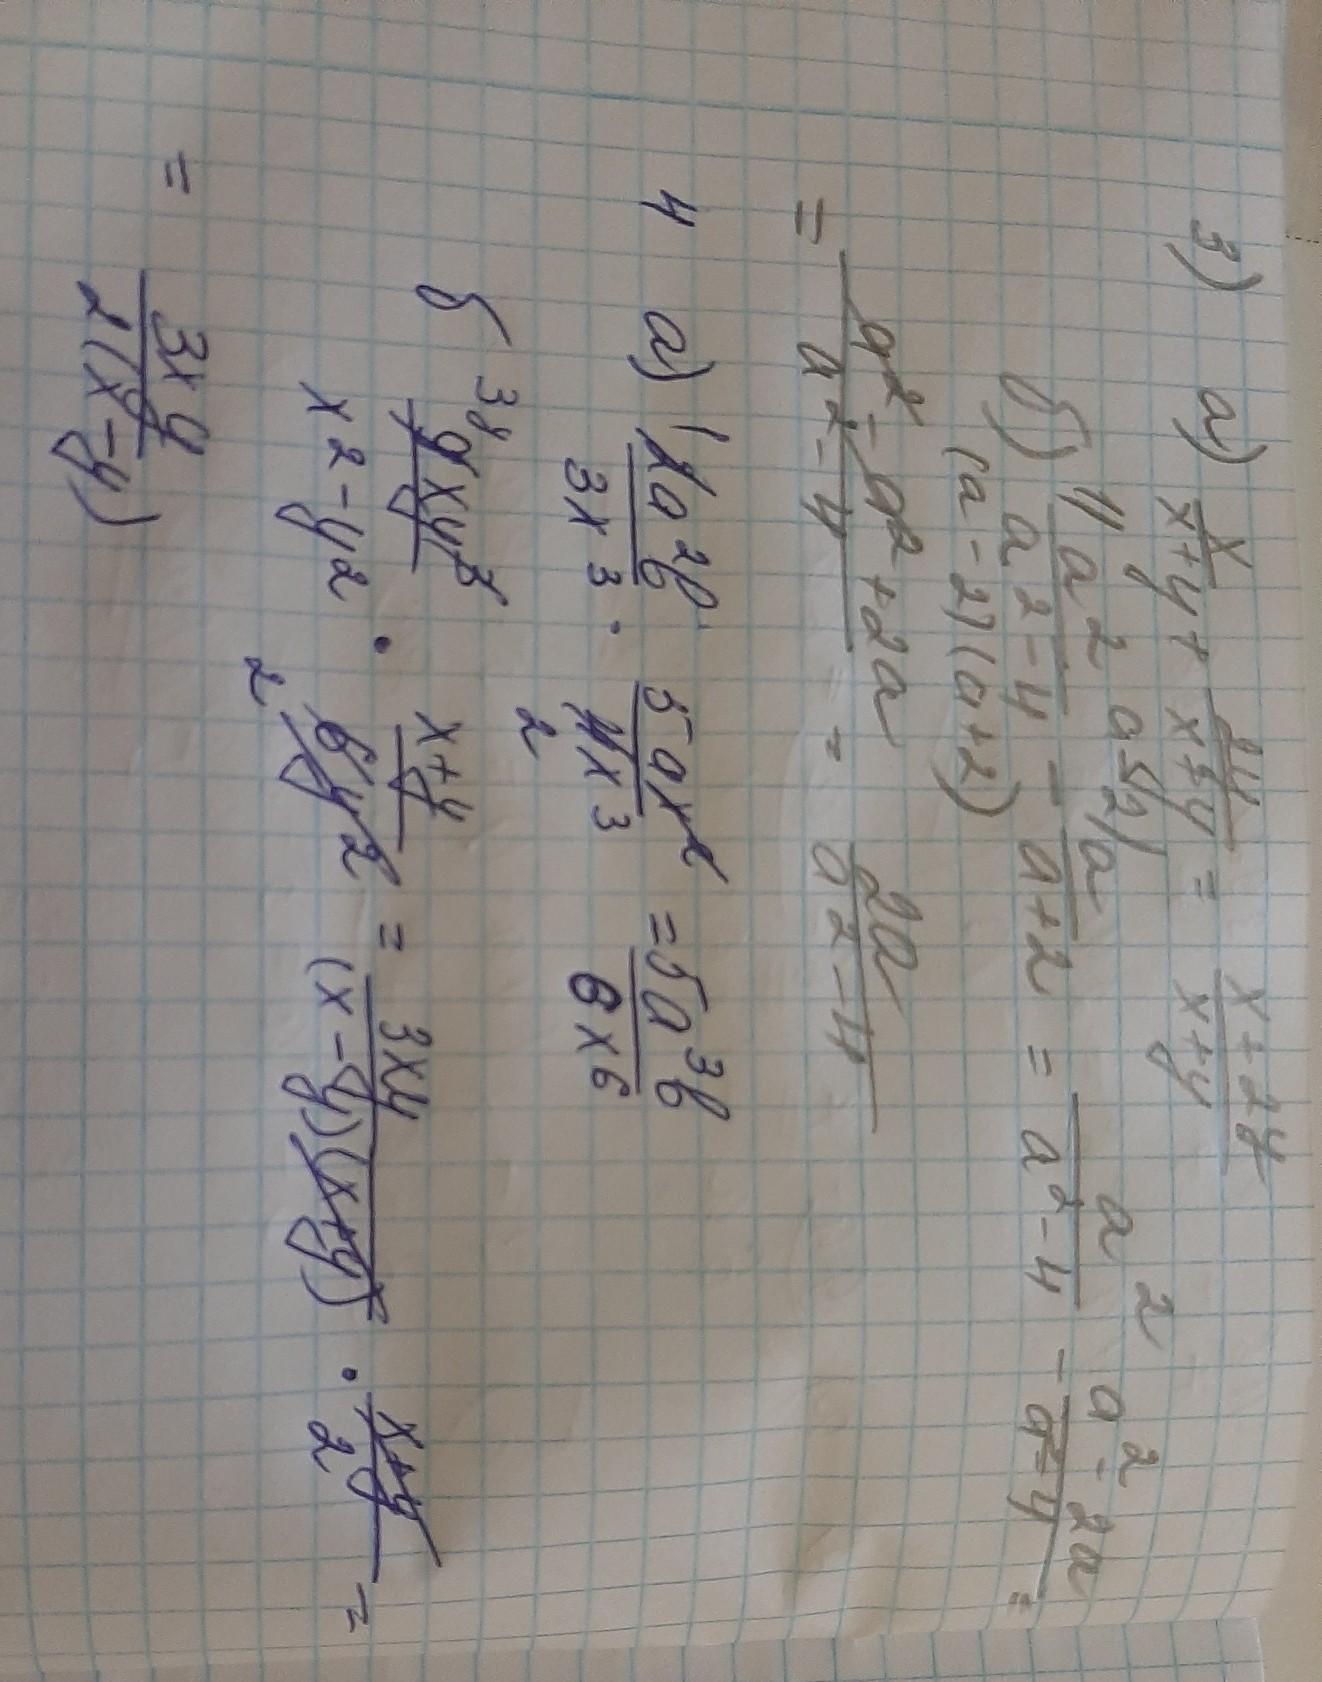 3) а) x/(x+y) + 2y/(x+y) = (x+2y)/(x+y)
б) a²/(a²-4) - a/(a+2) = a²/(a²-4) - (a²-2a)/(a²-4) =
(a-2)(a+2)
= (a²-a²+2a)/(a²-4) = 2a/(a²-4)
4 а) 2a²b/3x³ · 5ax/4x³ = 5a³b/6x⁶
2
б 9xy³/(x²-y²) · (x+y)/6y² = 3xy/((x-y)(x+y)) · (x+y)/2 =
2
= 3xy/(2(x-y))